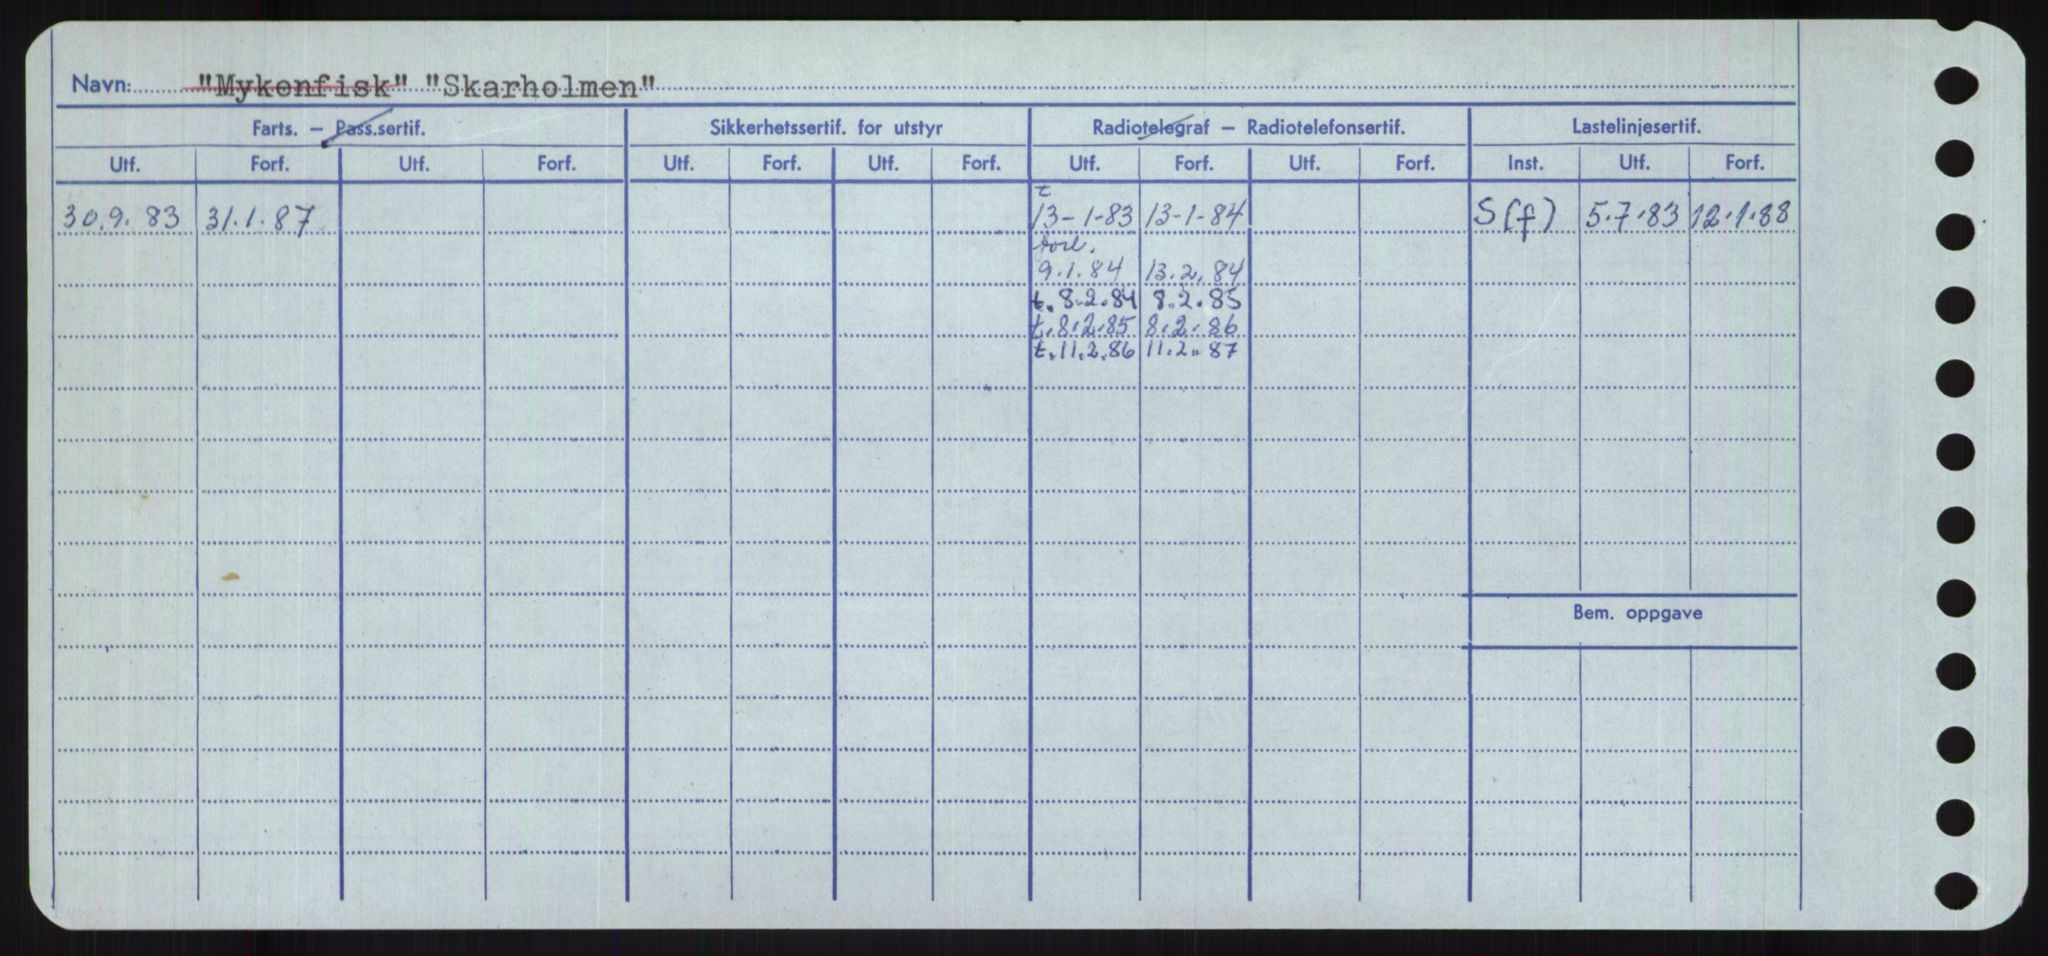 Navn: "Mykenfisk" "Skarholmen"
Farts. – Pass.sertif. Sikkerhetssertif. for utstyr Radiotelegraf – Radiotelefonsertif. Lastelinjesertif.
Utf. Forf. Utf. Forf. Utf. Forf. Utf. Forf. Utf. Forf. Utf. Forf. Inst. Utf. Forf.
t
30.9.83 31.1.87 13-1-83 13-1-84 S(f) 5.7.83 12.1.88
9.1.84 13.2.84
t. 8.2.84 8.2.85
t. 8.2.85 8.2.86
t. 11.2.86 11.2.87
Bem. oppgave